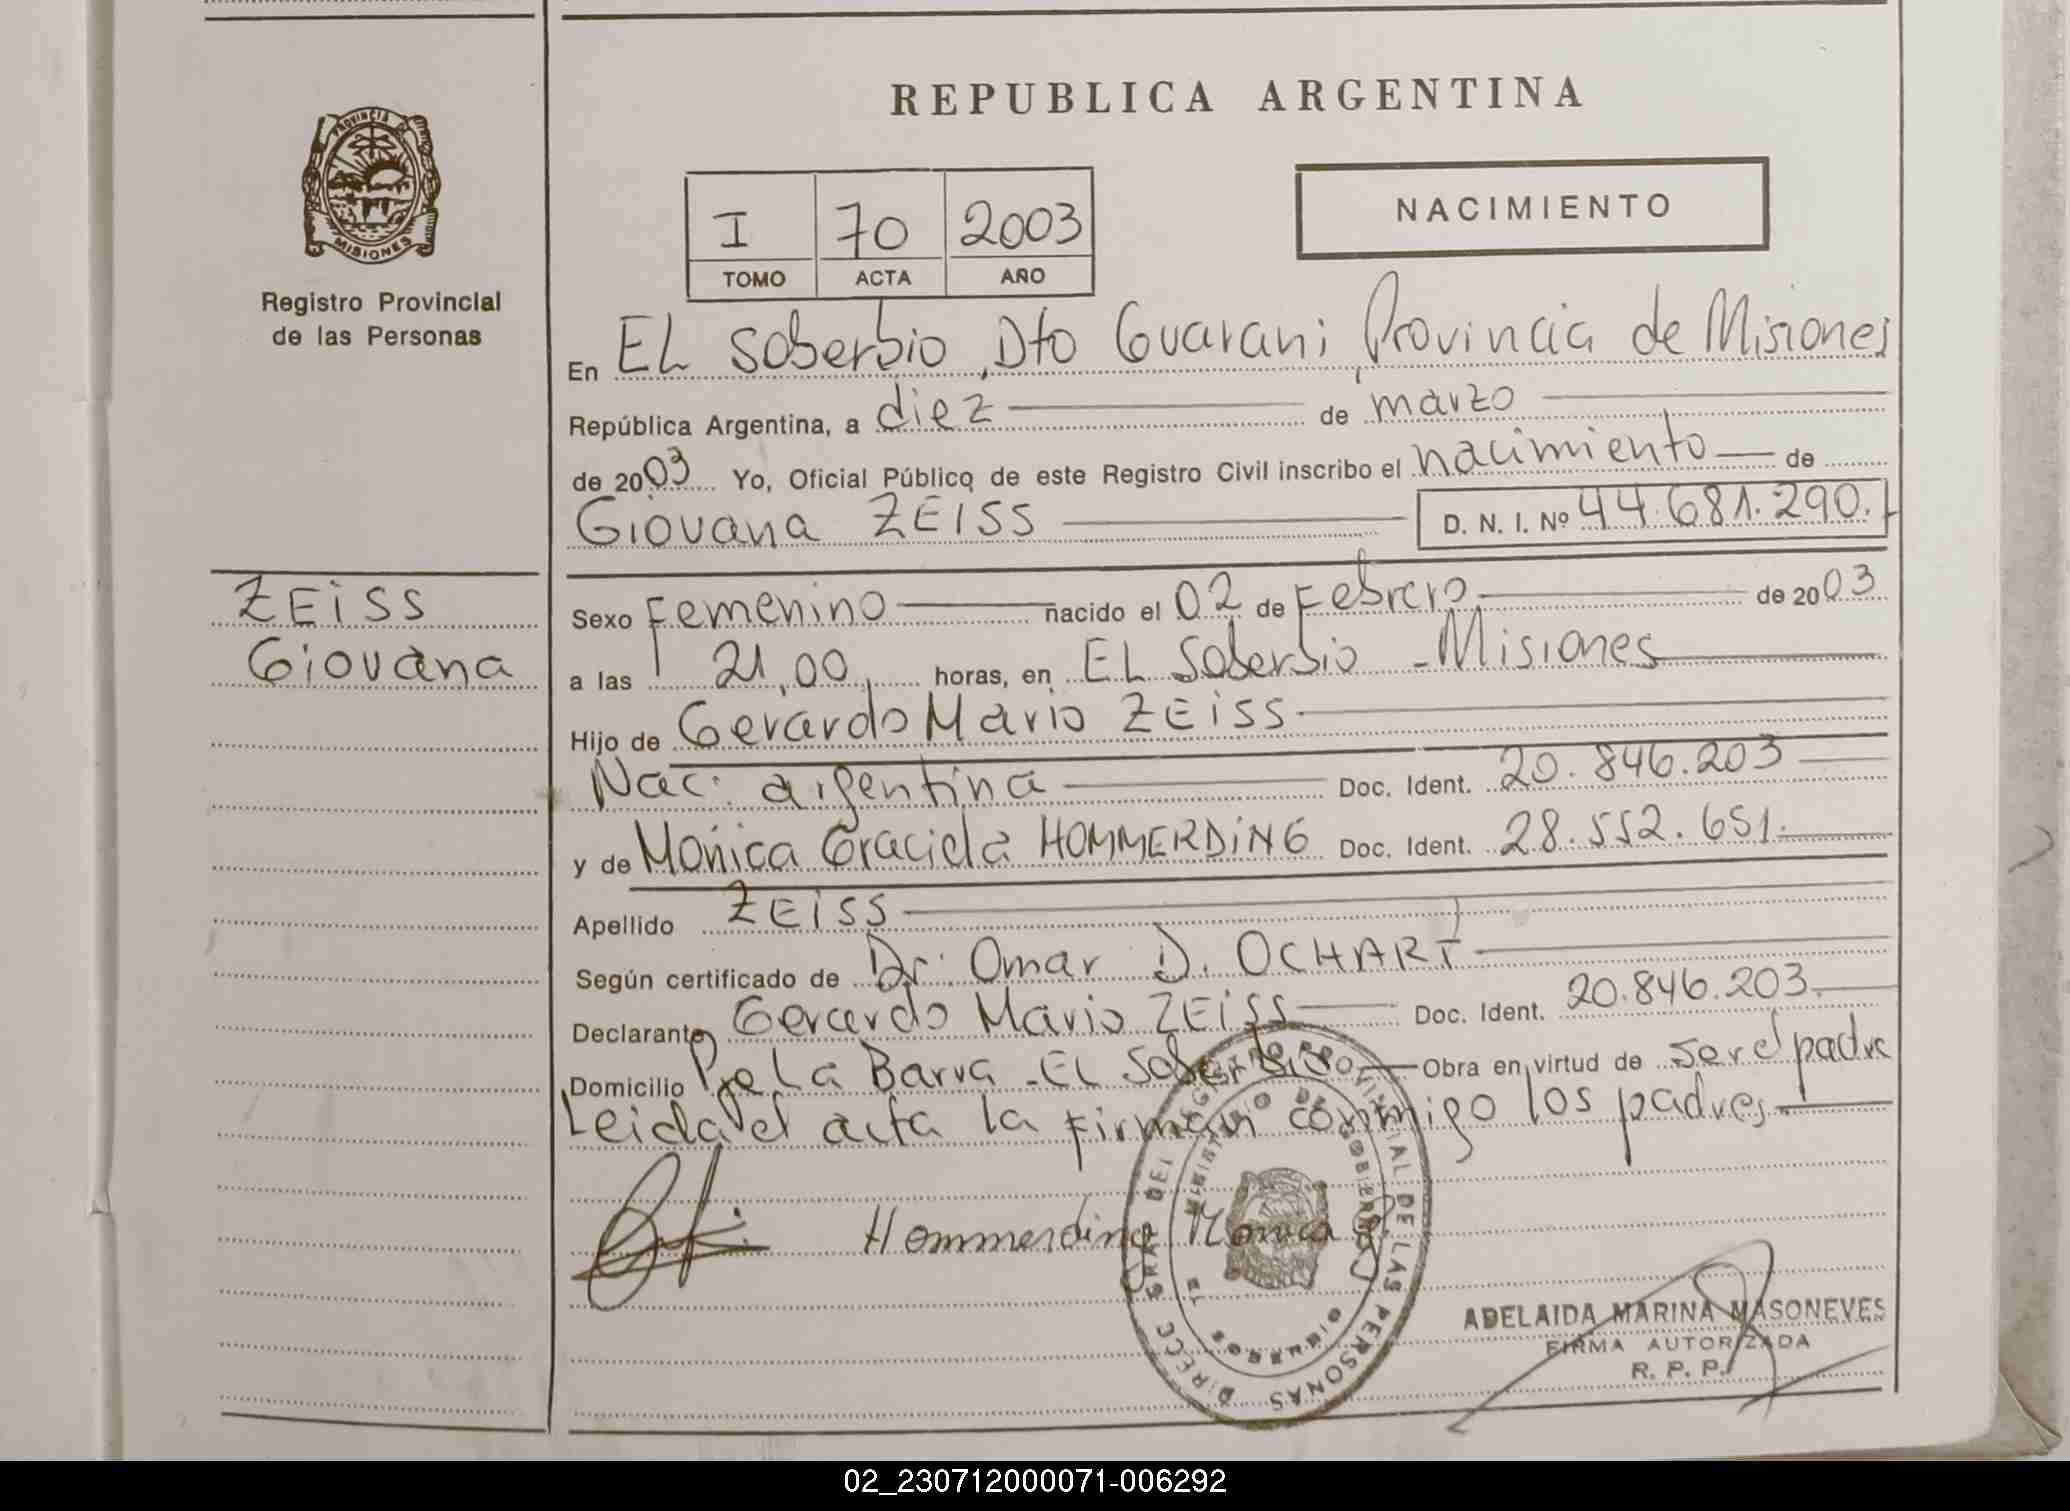 PROVINCIA DE
MISIONES
Registro Provincial
de las Personas
ZEISS
Giovana
REPUBLICA ARGENTINA
I 70 2003
TOMO ACTA AÑO
NACIMIENTO
En EL Soberbio, Dto Guarani, Provincia de Misiones
República Argentina, a diez de marzo
de 2003 Yo, Oficial Público de este Registro Civil inscribo el nacimiento de
Giovana ZEISS D. N. I. Nº 44.681.290.
Sexo Femenino nacido el 02 de Febrero de 2003
a las 21,00 horas, en EL Soberbio - Misiones
Hijo de Gerardo Mario ZEISS
Nac: argentina Doc. Ident. 20.846.203
y de Monica Graciela HOMMERDING Doc. Ident. 28.552.651.
Apellido ZEISS
Según certificado de Dr. Omar D. OCHART
Declarante Gerardo Mario ZEISS Doc. Ident. 20.846.203.
Domicilio Pje La Barra - EL Soberbio Obra en virtud de ser el padre
Leida el acta la firman conmigo los padres
Hommerding Monica G.
DIRECC GRAL DEL REGISTRO PROVINCIAL DE LAS PERSONAS
MINISTERIO DE GOBIERNO
MISIONES
ADELAIDA MARINA MASONEVES
FIRMA AUTORIZADA
R. P. P.
02_230712000071-006292